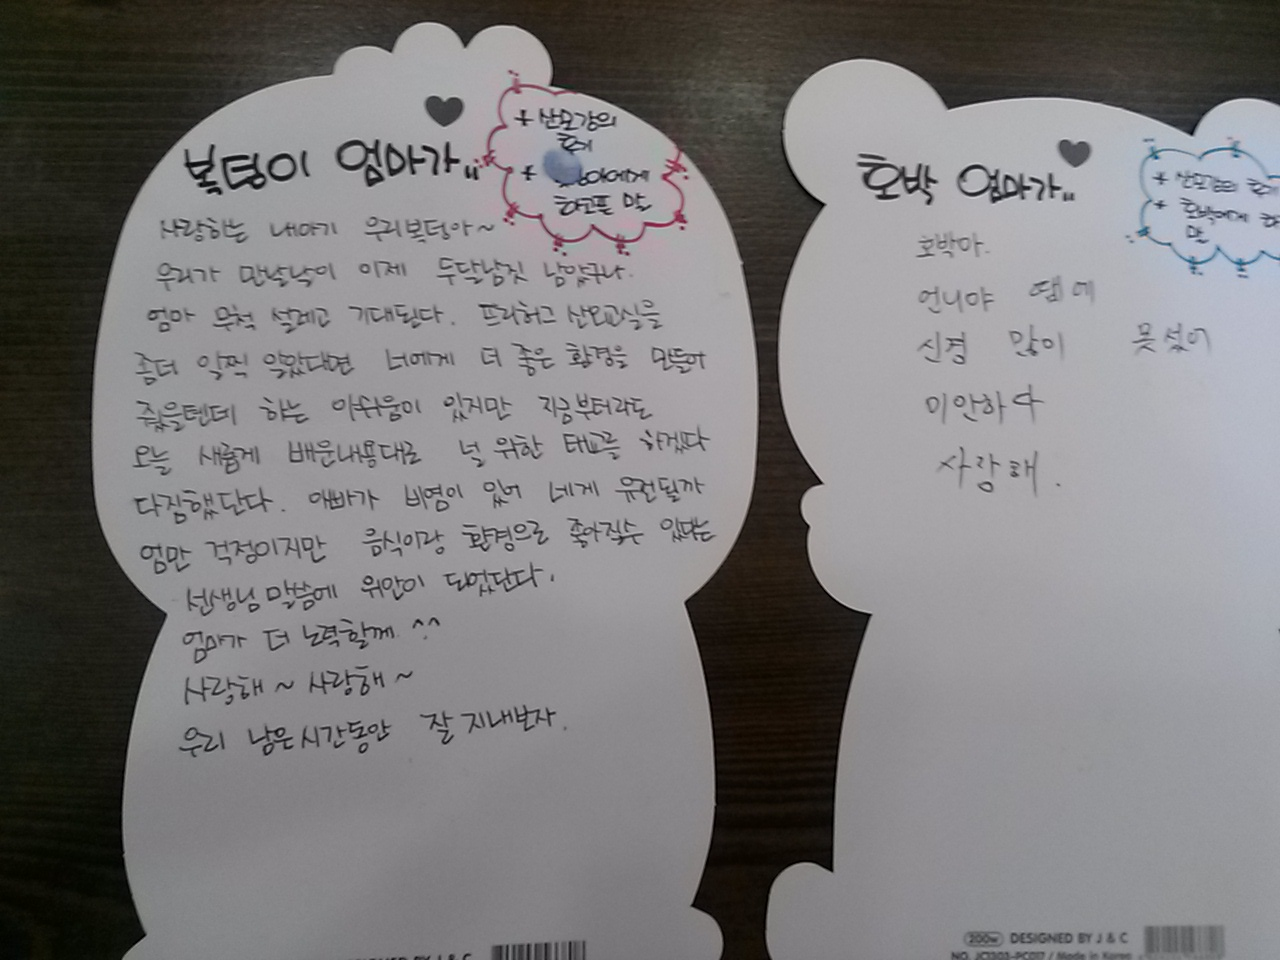 복덩이 엄마가
+ 산모강의
후기
+
아에게
하고픈 말
사랑하는 내아기 우리복덩아~
우리가 만날날이 이제 두달남짓 남았구나.
엄마 무척 설레고 기대된다. 프라하그 산모교실을
좀더 일찍 알았다면 너에게 더 좋은 환경을 만들어
줬을텐데 하는 아쉬움이 있지만 지금부터라도
오늘 새롭게 배운내용대로 널 위한 태교를 하겠다
다짐했단다. 아빠가 비염이 있어 네게 유전될까
엄만 걱정이지만 음식이랑 환경으로 좋아질수 있다는
선생님 말씀에 위안이 되었단다.
엄마가 더 노력할께 ^^
사랑해~ 사랑해~
우리 남은시간동안 잘 지내보자.
호박 엄마가
+ 산모강의 후기
+ 호박에게 하
말
호박아.
언니야 땜에
신경 많이 못썼어
미안하다
사랑해.
200w DESIGNED BY J & C
NO. JC1303-PC017 / Made in Korea
DESIGNED BY J & C